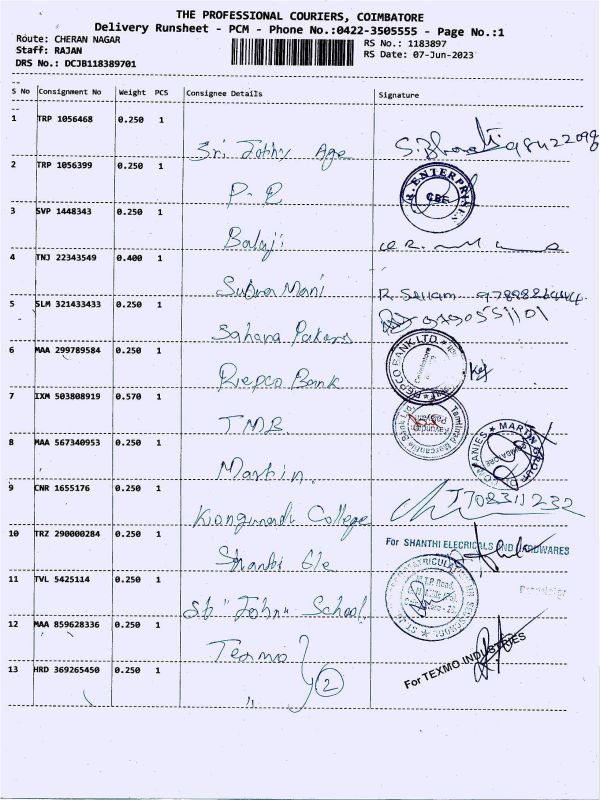 THE PROFESSIONAL COURIERS, COIMBATORE
Delivery Runsheet - PCM - Phone No.:0422-3505555 - Page No.:1
Route: CHERAN NAGAR
RS No.: 1183897
Staff: RAJAN
RS Date: 07-Jun-2023
DRS No.: DCJB118389701
S No Consignment No Weight PCS Consignee Details Signature
1 TRP 1056468 0.250 1
Sri Jobby Age
2 TRP 1056399 0.250 1
P-R
ENTERPRISES
CBE
3 SVP 1448343 0.250 1
Balaji
4 TNJ 22343549 0.400 1
Subra Mani
5 SLM 321433433 0.250 1
Sahara Pakers
6 MAA 299789584 0.250 1
Repco Bank
REPCO BANK LTD.
7 IXM 503808919 0.570 1
TMB
Tamilnad Mercantile Bank Ltd
8 MAA 567340953 0.250 1
Martin.
MARTIN GROUP OF COMPANIES
9 CNR 1655176 0.250 1
Kongunadu College
10 TRZ 290000284 0.250 1
Shanthi Ele
For SHANTHI ELECRICALS AND HARDWARES
11 TVL 5425114 0.250 1
St "John" School
12 MAA 859628336 0.250 1
Texmo
For TEXMO INDUSTRIES
13 HRD 369265450 0.250 1
2
"